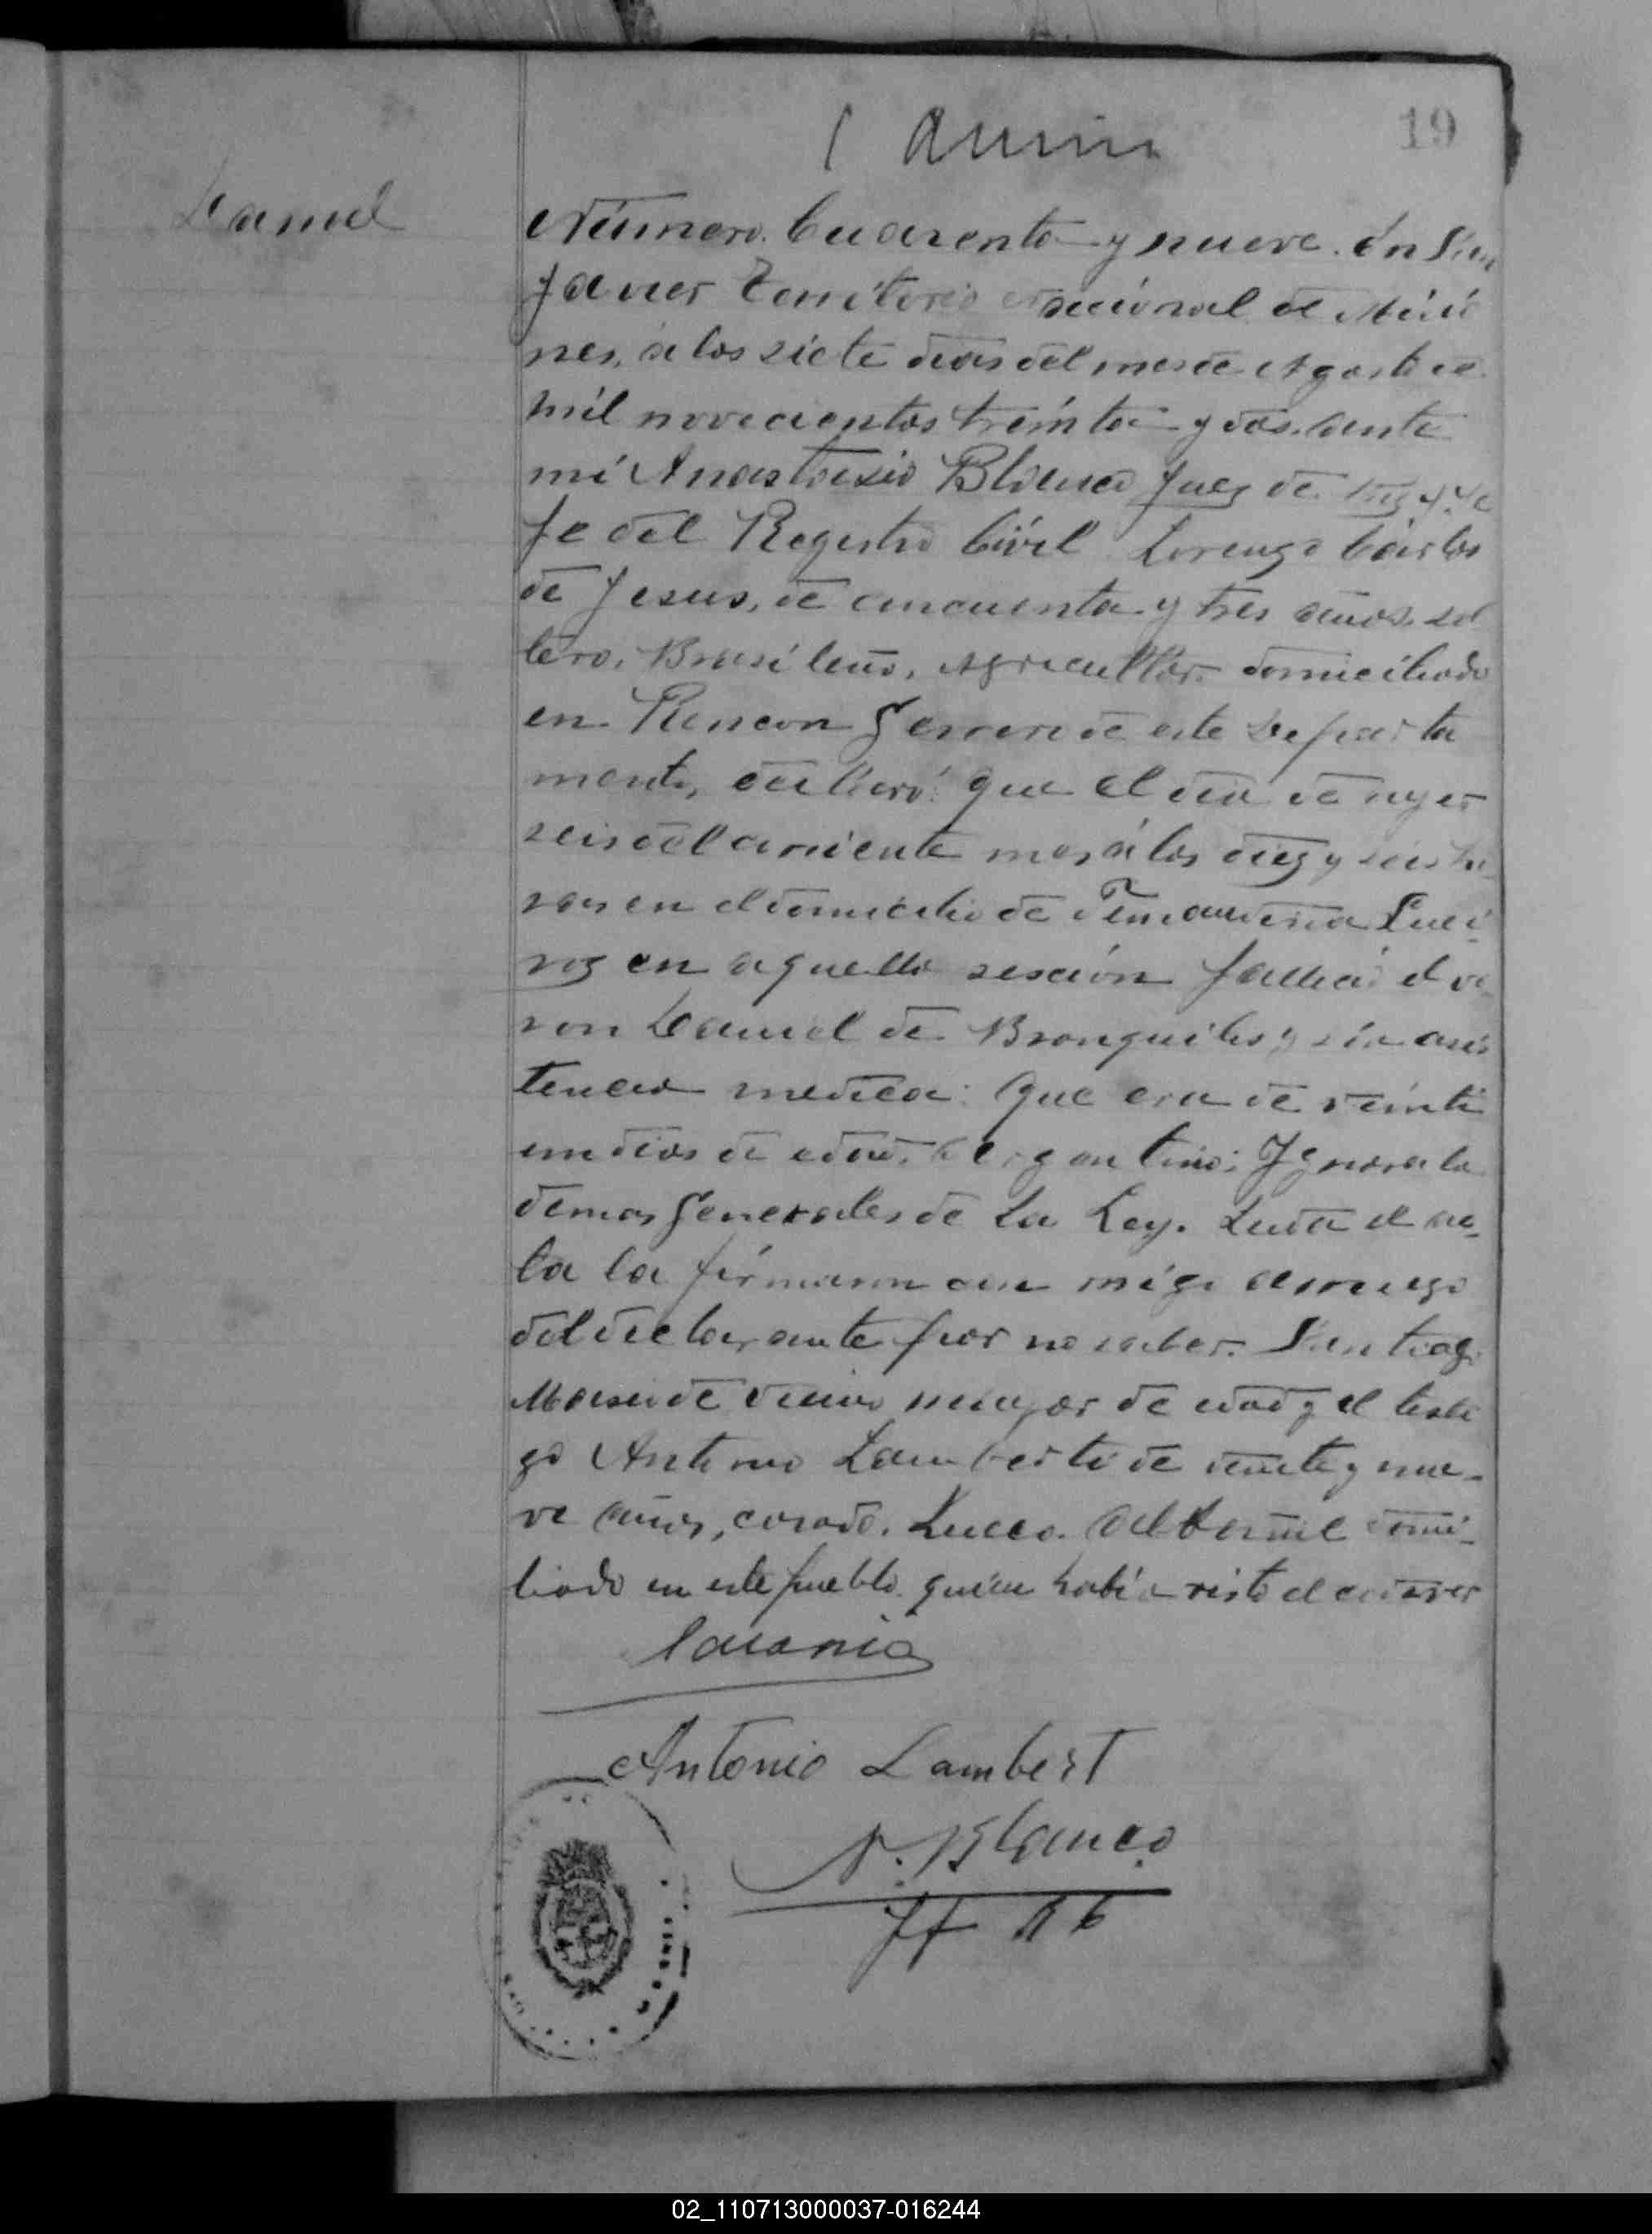 19
Número Cuarenta y nueve. En San
Javier Territorio Nacional de Misio
nes, á los siete dias del mes de Agosto de
mil novecientos treinta y dos. ante
mi Anastasio Blanco Juez de Paz y Je
fe del Registro Civil Lorenzo Cárlos
de Jesus, de cincuenta y tres años, sol
tero, Brasileño, Agricultor domiciliado
en Rincon de este Departa
mento, declaró: Que el dia de ayer
seis del corriente mes á las diez y seis ho
ras en el domicilio de
en aquella sección falleció el va
ron de Bronquitis y sin asis
tencia medica: Que era de veinti
un dias de edad, Argentino; Ignora la
demas Generales de La Ley. Leida el ac_
ta la firmaron con migo a ruego
del declarante por no saber Santiago
mayor de edad y el testi
go Antonio Lamberti de veinte y nue_
ve años, casado, Sueco. domi_
liado en este pueblo quien había visto el cadaver
Antonio Lambert
A. Blanco
02_110713000037-016244